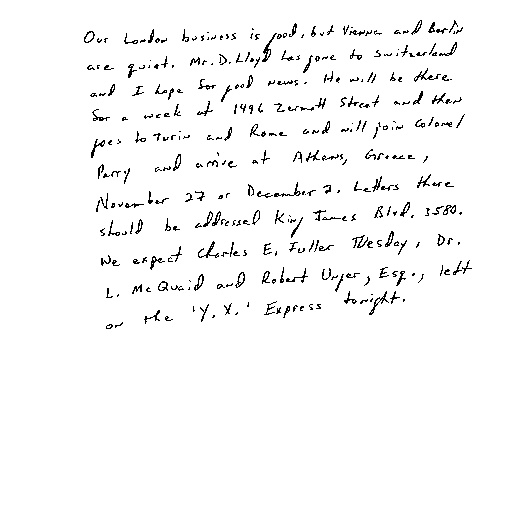 Our London business is good, but Vienna and Berlin
are quiet. Mr. D. Lloyd has gone to Switzerland
and I hope for good news. He will be there
for a week at 1496 Zermott Street and then
goes to Turin and Rome and will join Colonel
Parry and arrive at Athens, Greece,
November 27 or December 2. Letters there
should be addressed King James Blvd. 3580.
We expect Charles E. Fuller Tuesday, Dr.
L. McQuaid and Robert Unger, Esq., left
on the 'Y.X.' Express tonight.